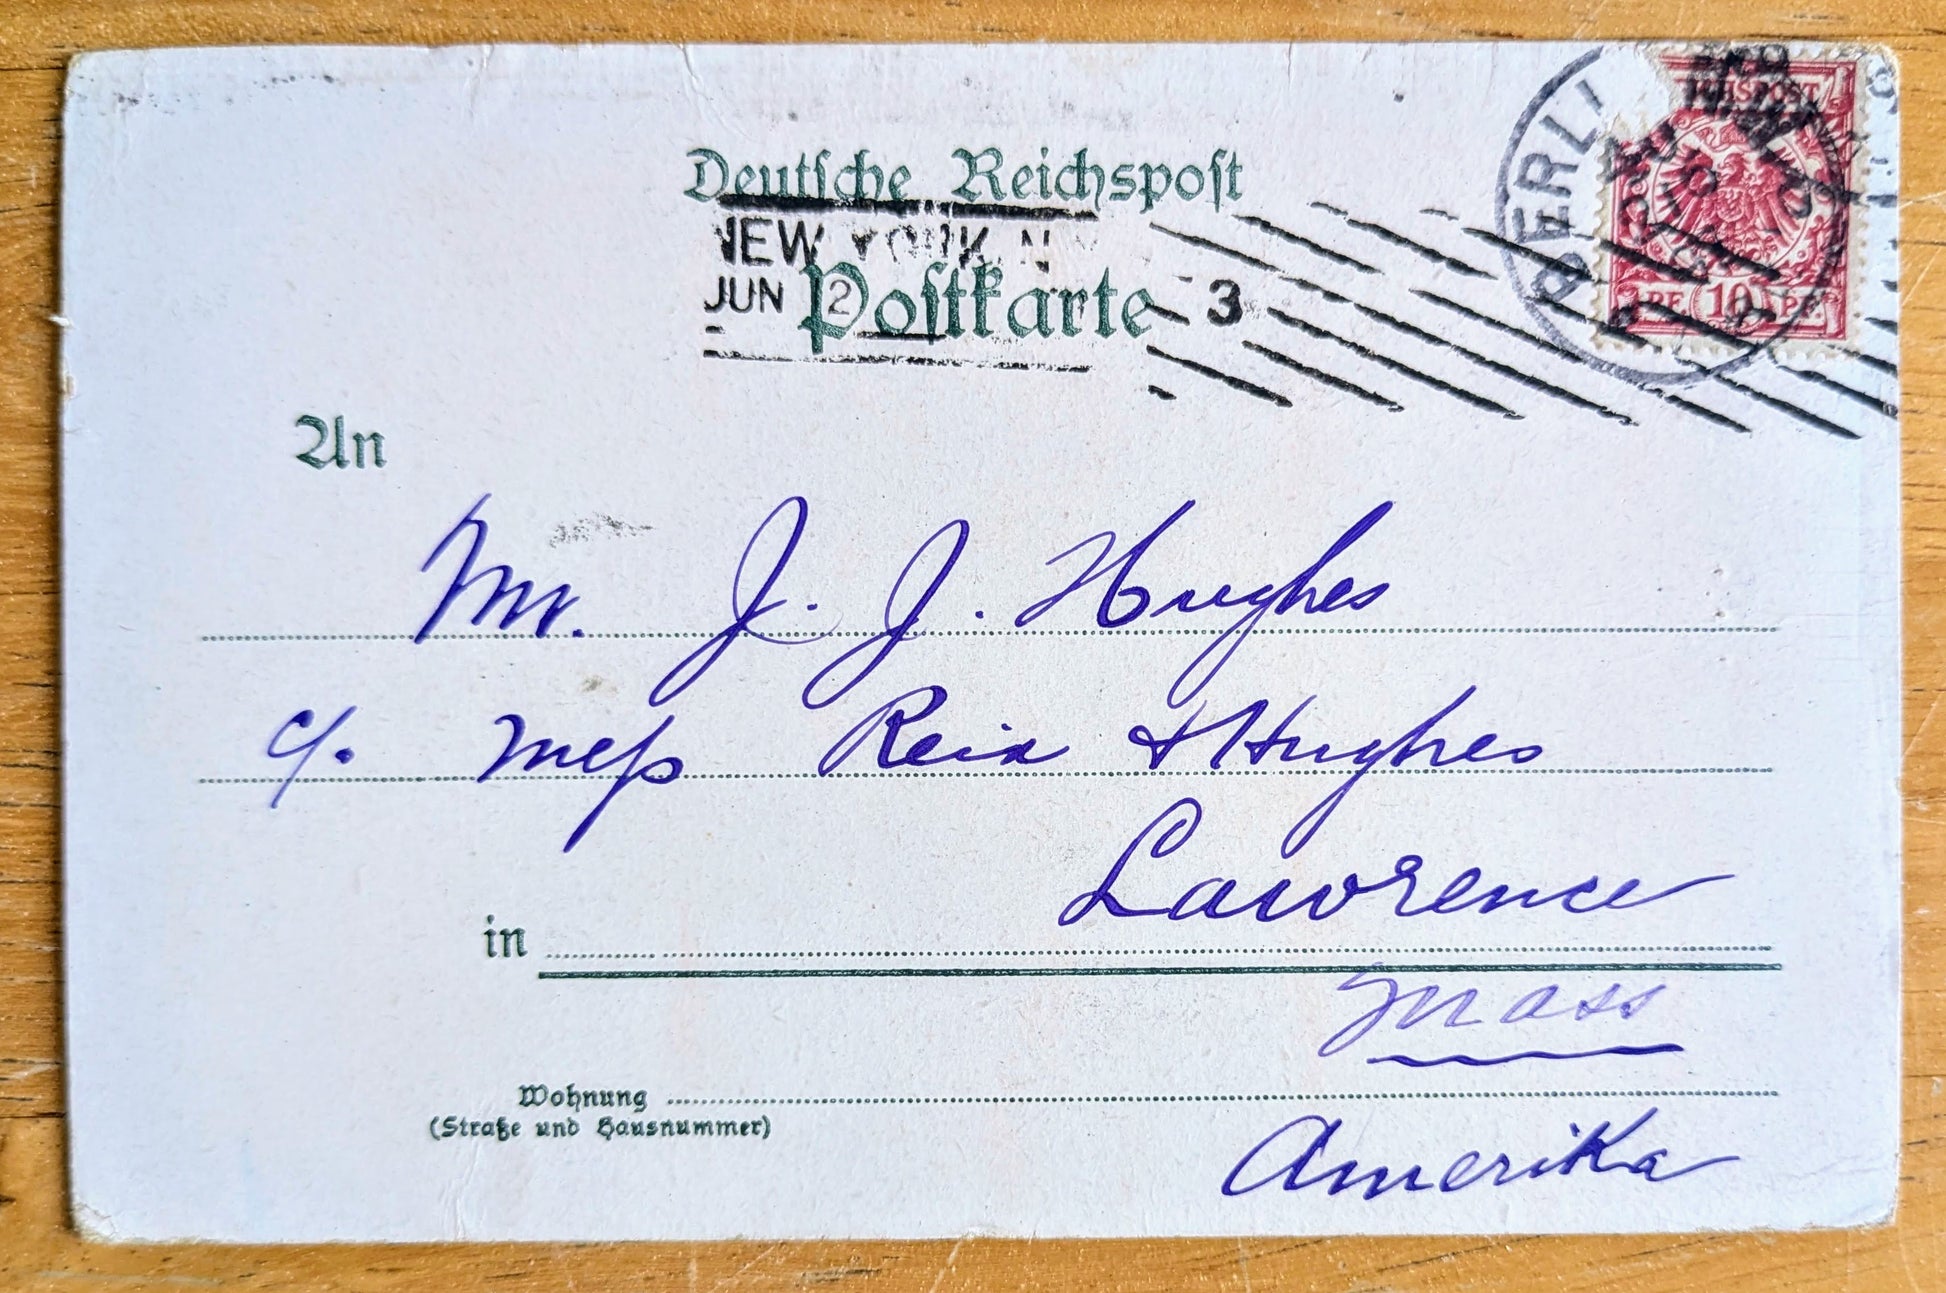 Deutsche Reichspost
NEW YORK, N
JUN 2
Postkarte
3
BERLI
REICHSPOST
PF 10 PF
An
Mr. J. J. Hughes
c/. Mess Reid & Hughes
Lawrence
in
Mass
Wohnung
(Straße und Hausnummer)
Amerika